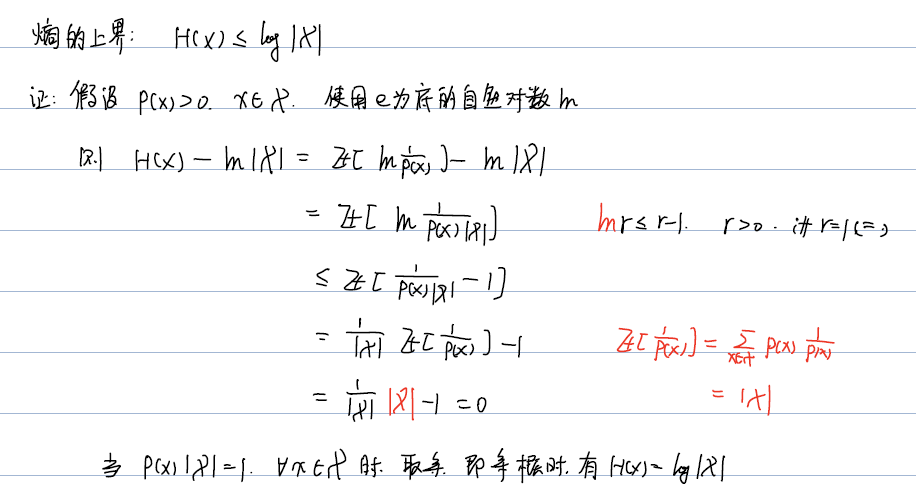 熵的上界: H(X) ≤ log |𝒳|
证: 假设 P(x)>0. x∈𝒳. 使用e为底的自然对数 ln
则 H(X) − ln|𝒳| = E[ ln 1/P(x) ] − ln |𝒳|
= E[ ln 1/(P(x)|𝒳|) ] ln r ≤ r−1. r>0. iff r=1 (=)
≤ E[ 1/(P(x)|𝒳|) − 1 ]
= 1/|𝒳| E[ 1/P(x) ] − 1 E[ 1/P(x) ] = Σ_{x∈𝒳} P(x) 1/P(x)
= 1/|𝒳| |𝒳| − 1 = 0 = |𝒳|
当 P(x)|𝒳|=1. ∀x∈𝒳 时. 取等. 即等概时. 有 H(X) = log|𝒳|